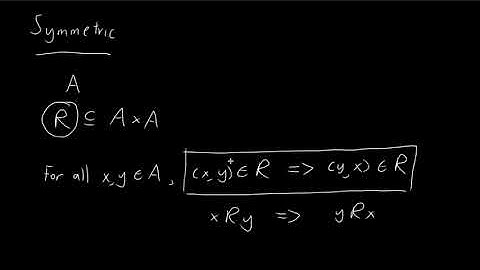 Symmetric
A
R ⊆ A × A
For all x, y ∈ A, (x, y) ∈ R => (y, x) ∈ R
x R y => y R x